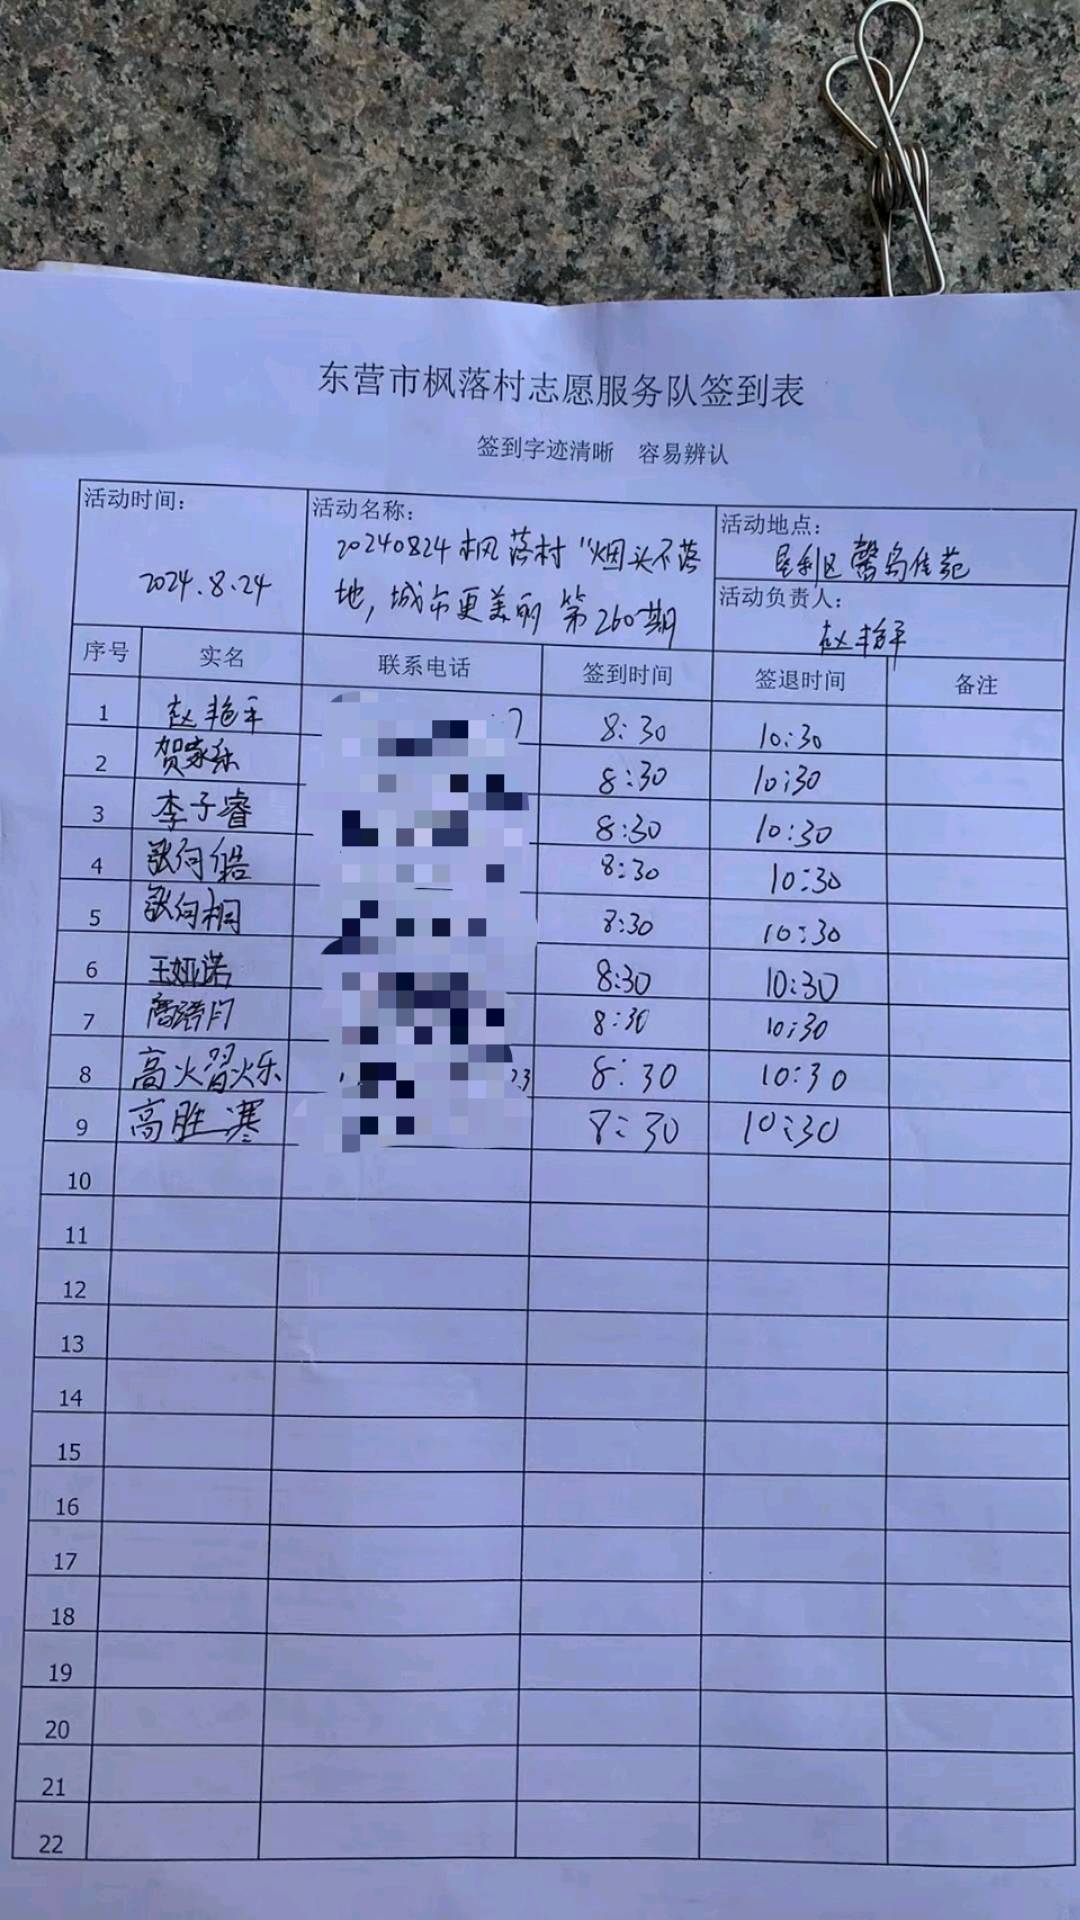 东营市枫落村志愿服务队签到表
签到字迹清晰 容易辨认
活动时间：
2024.8.24
活动名称：
20240824枫落村“烟头不落
地，城市更美丽 第260期
活动地点：
垦利区馨岛佳苑
活动负责人：
赵艳平
序号 实名 联系电话 签到时间 签退时间 备注
1 赵艳平 8:30 10:30
2 贺家乐 8:30 10:30
3 李子睿 8:30 10:30
4 张向皓 8:30 10:30
5 张向桐 8:30 10:30
6 王娅诺 8:30 10:30
7 8:30 10:30
8 高熠烁 8:30 10:30
9 高胜寒 8:30 10:30
10
11
12
13
14
15
16
17
18
19
20
21
22